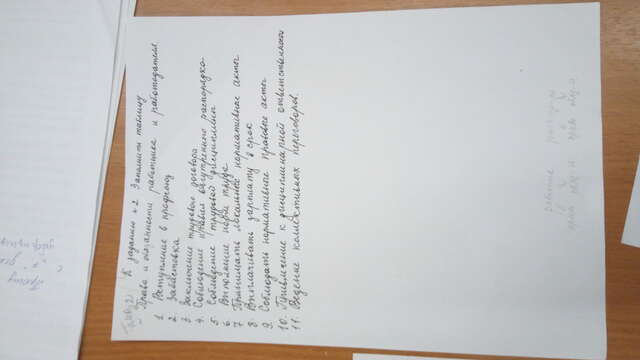 К заданию № 2. Заполнить таблицу
Права и обязанности работника и работодателя
1. Вступление в профсоюз
2. Забастовка
3. Заключение трудового договора
4. Соблюдение правил внутреннего распорядка
5. Соблюдение трудовой дисциплины
6. Выполнение норм труда
7. Принимать локальные нормативные акты
8. Выплачивать зарплату в срок
9. Соблюдать нормативные правовые акты
10. Привлечение к дисциплинарной ответственности
11. Ведение коллективных переговоров.